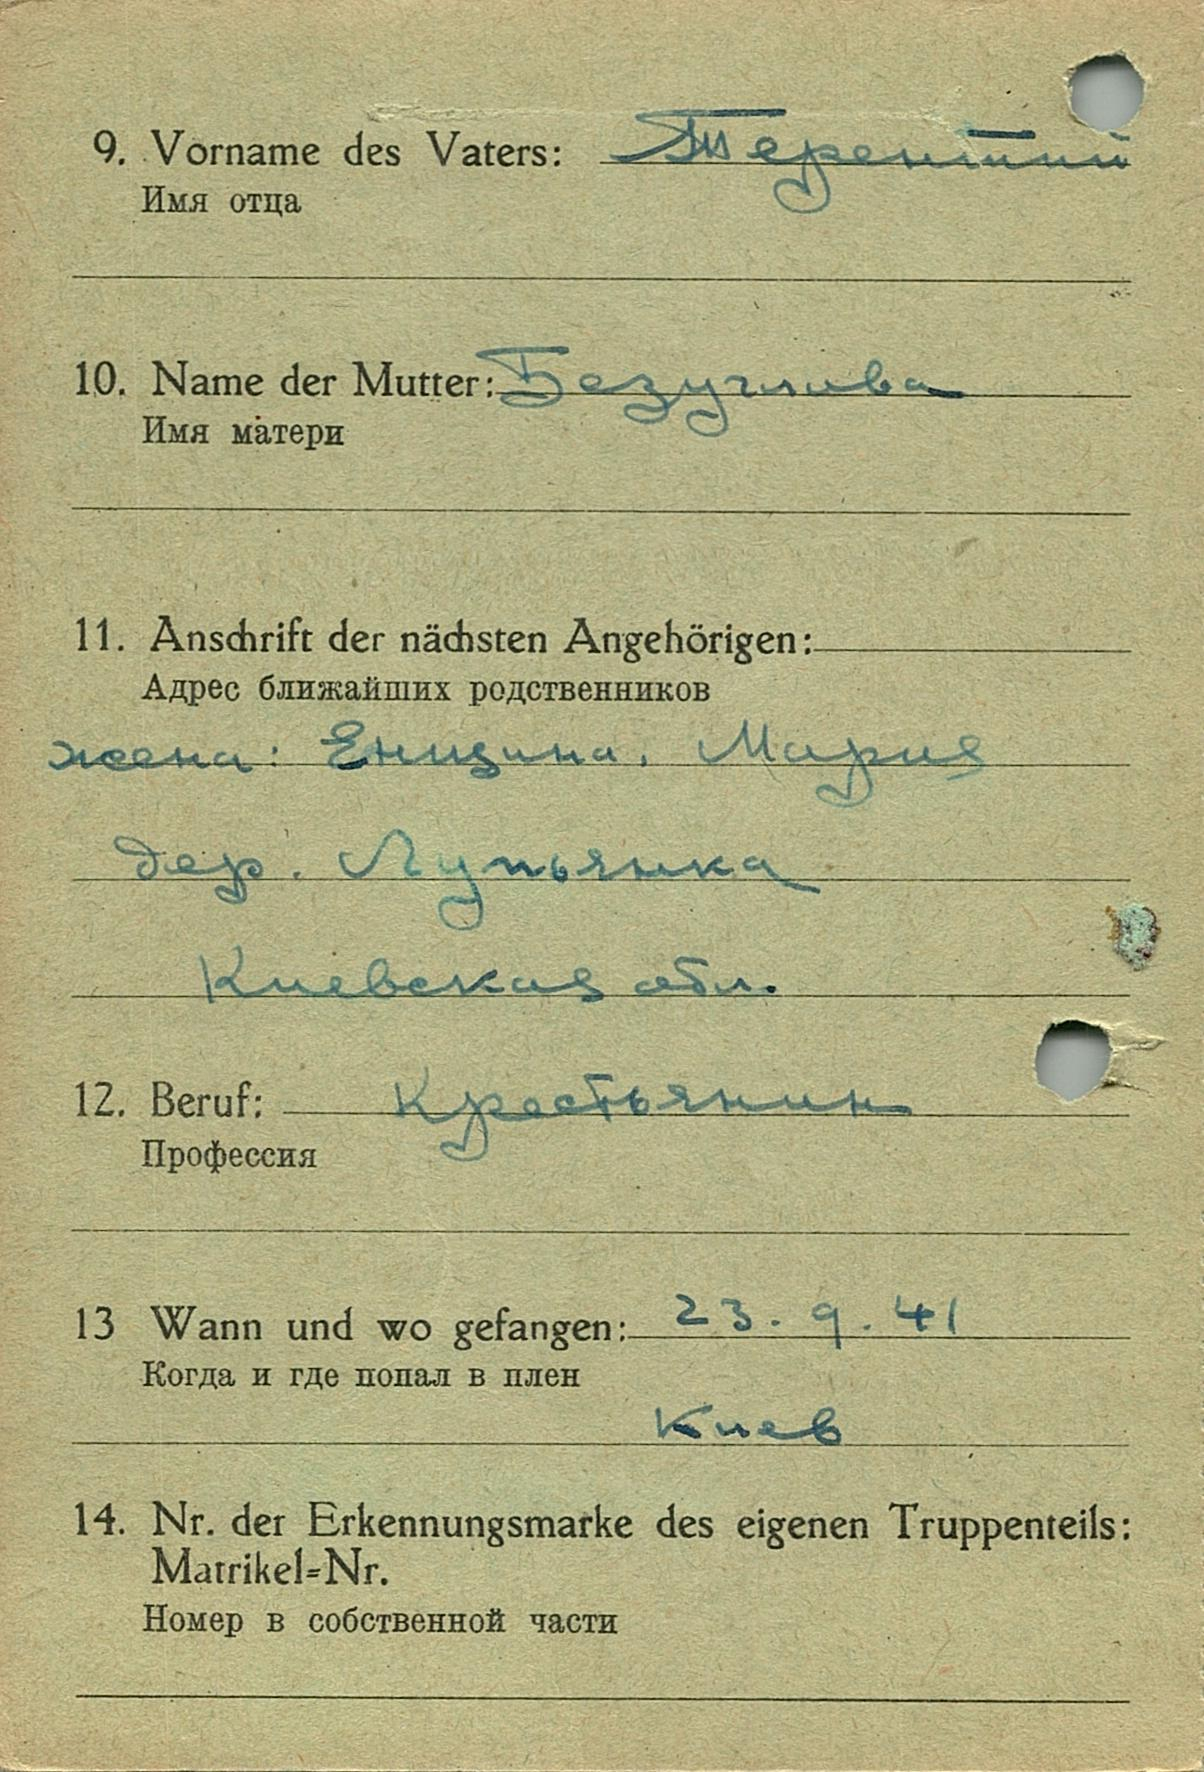 9. Vorname des Vaters: Терентий
Имя отца
10. Name der Mutter: Безуглова
Имя матери
11. Anschrift der nächsten Angehörigen:
Адрес ближайших родственников
жена: Енщина, Мария
дер. Лупьянка
Киевская обл.
12. Beruf: Крестьянин
Профессия
13 Wann und wo gefangen: 23. 9. 41
Когда и где попал в плен
Киев
14. Nr. der Erkennungsmarke des eigenen Truppenteils:
Matrikel=Nr.
Номер в собственной части